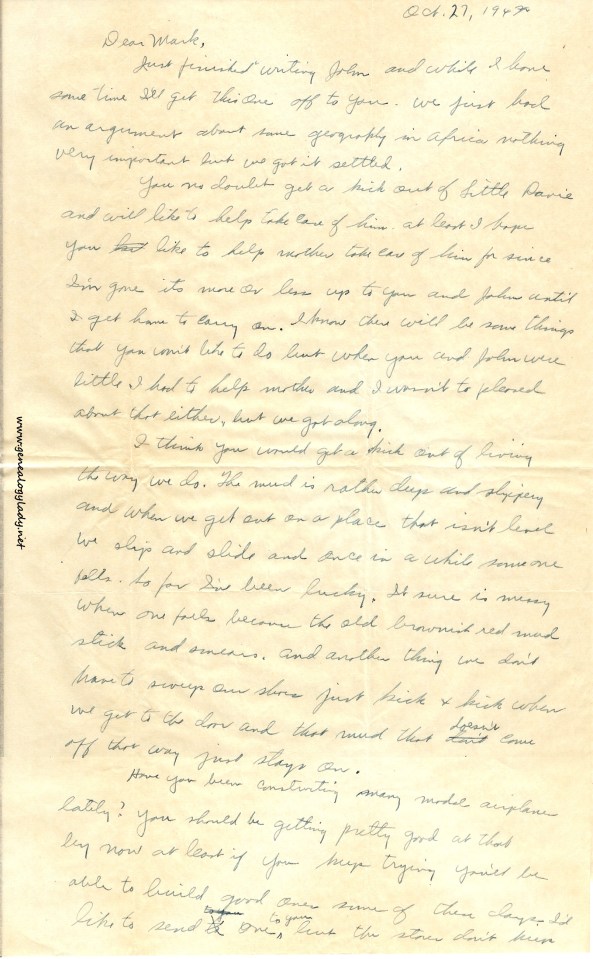 Oct. 27, 194
Dear Mark,
Just finished writing John and while I have
some time I'll get this one off to you. We just had
an argument about some geography in Africa nothing
very important but we got it settled.
You no doubt get a kick out of Little Davie
and will like to help take care of him. at least I hope
you like to help mother take care of him for since
I'm gone its more or less up to you and John until
I get home to carry on. I know there will be some things
that you won't like to do but when you and John were
little I had to help mother and I wasn't to pleased
about that either, but we got along.
I think you would get a kick out of living
the way we do. The mud is rather deep and slippery
and when we get out on a place that isn't level
we slip and slide and once in a while someone
falls. So far I've been lucky. It sure is messy
when one falls because the old brownish red mud
stick and smears. And another thing we don't
have to sweep our shoes just kick + kick when
we get to the door and that mud that don't doesn't come
off that way just stays on.
Have you been constructing many model airplanes
lately? You should be getting pretty good at that
by now at least if you keep trying you'll be
able to build good ones some of these days. I'd
like to send one, to you but the stores don't keep
www.genealogylady.net